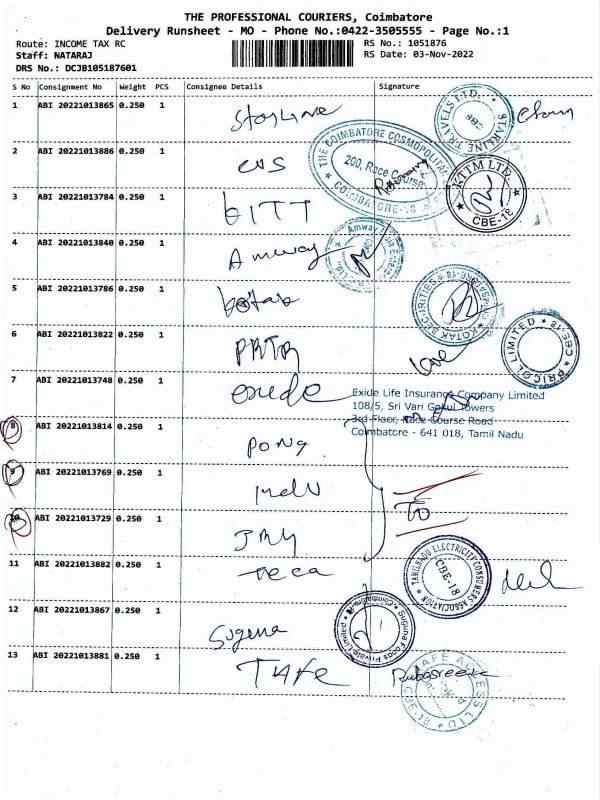 THE PROFESSIONAL COURIERS, Coimbatore
Delivery Runsheet - MO - Phone No.:0422-3505555 - Page No.:1
Route: INCOME TAX RC
RS No.: 1051876
Staff: NATARAJ
RS Date: 03-Nov-2022
DRS No.: DCJB105187601
S No Consignment No Weight PCS Consignee Details Signature
1 ABI 20221013865 0.250 1 Starline
STARLINE TRAVELS LTD. CBE
2 ABI 20221013886 0.250 1 cos
THE COIMBATORE COSMOPOLITAN
200, Race Course
COIMBATORE-18
KTTM LTD. CBE-18
3 ABI 20221013784 0.250 1
4 ABI 20221013840 0.250 1 Amway
Amway India
5 ABI 20221013786 0.250 1 kotak
KOTAK SECURITIES
6 ABI 20221013822 0.250 1 PRTR
PRICOL LIMITED CBE-18
7 ABI 20221013748 0.250 1 exide
Exide Life Insurance Company Limited
108/5, Sri Vari Gokul Towers
3rd Floor, Race Course Road
Coimbatore - 641 018, Tamil Nadu
8 ABI 20221013814 0.250 1 pong
9 ABI 20221013769 0.250 1
To
10 ABI 20221013729 0.250 1
11 ABI 20221013882 0.250 1 Teca
TAMILNADU ELECTRICITY CONSUMERS ASSOCIATION
CBE-18
12 ABI 20221013867 0.250 1 Suguna
Suguna Foods Private Limited Coimbatore
13 ABI 20221013881 0.250 1
SAFE ACCESS LTD CBE-18